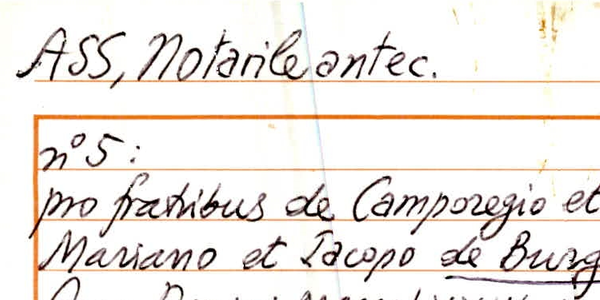 ASS, Notarile antec.
n° 5:
pro fratribus de Camporegio et
Mariano et Iacopo de Burg